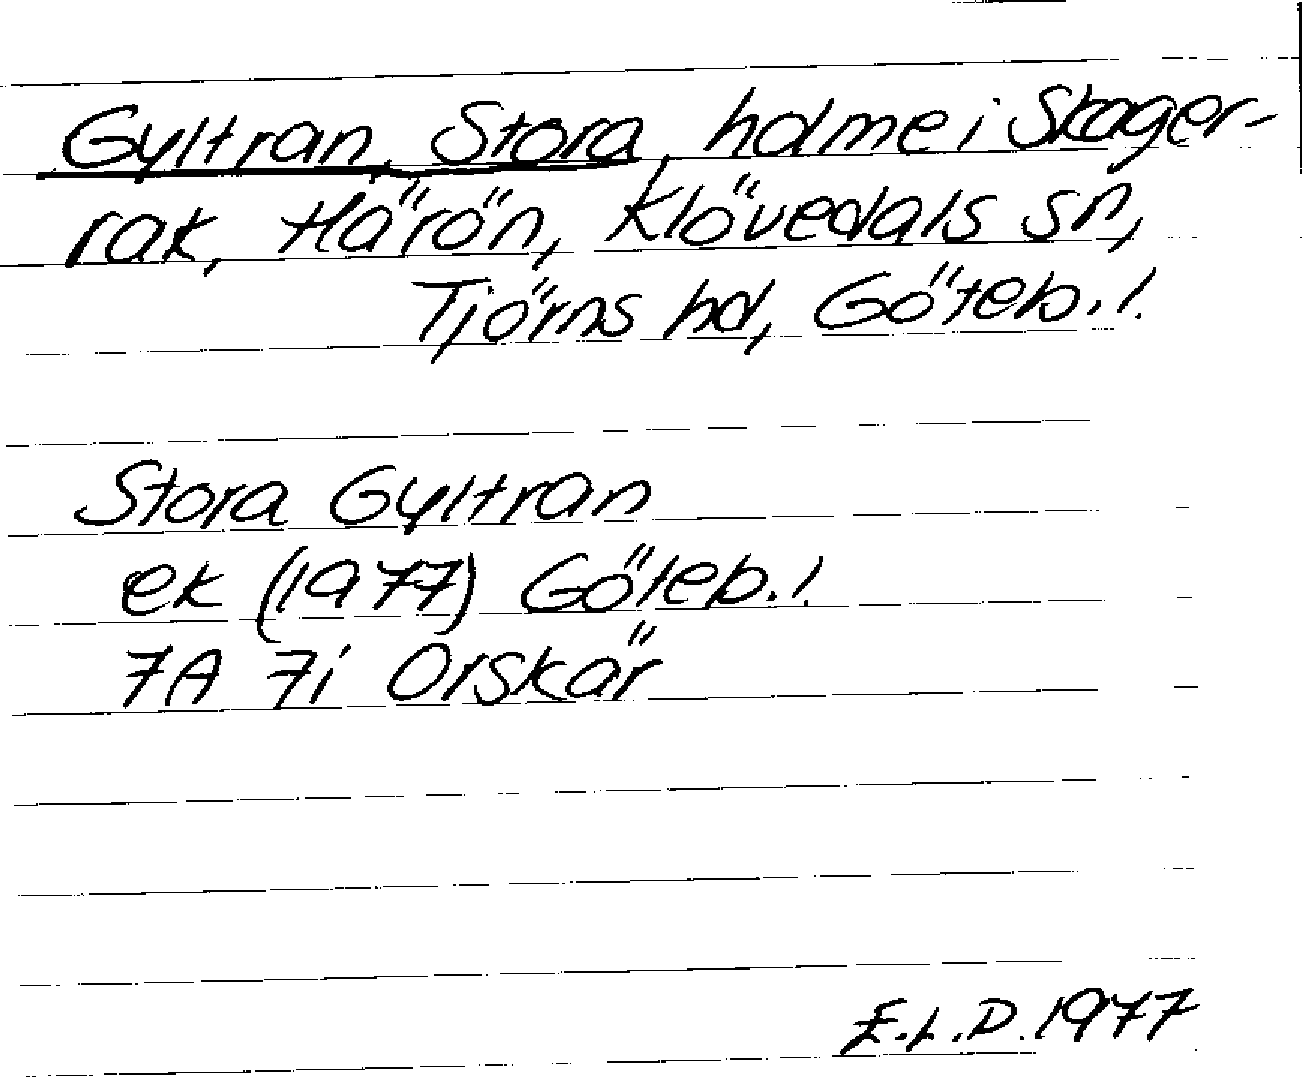 Gyltran, Stora, holme i Skager-
rak, Härön, Klövedals sn,
Tjörns hd, Göteb. l.
Stora Gyltran
ek (1977) Göteb. l.
7A 7i Orskär
E.L.D. 1977